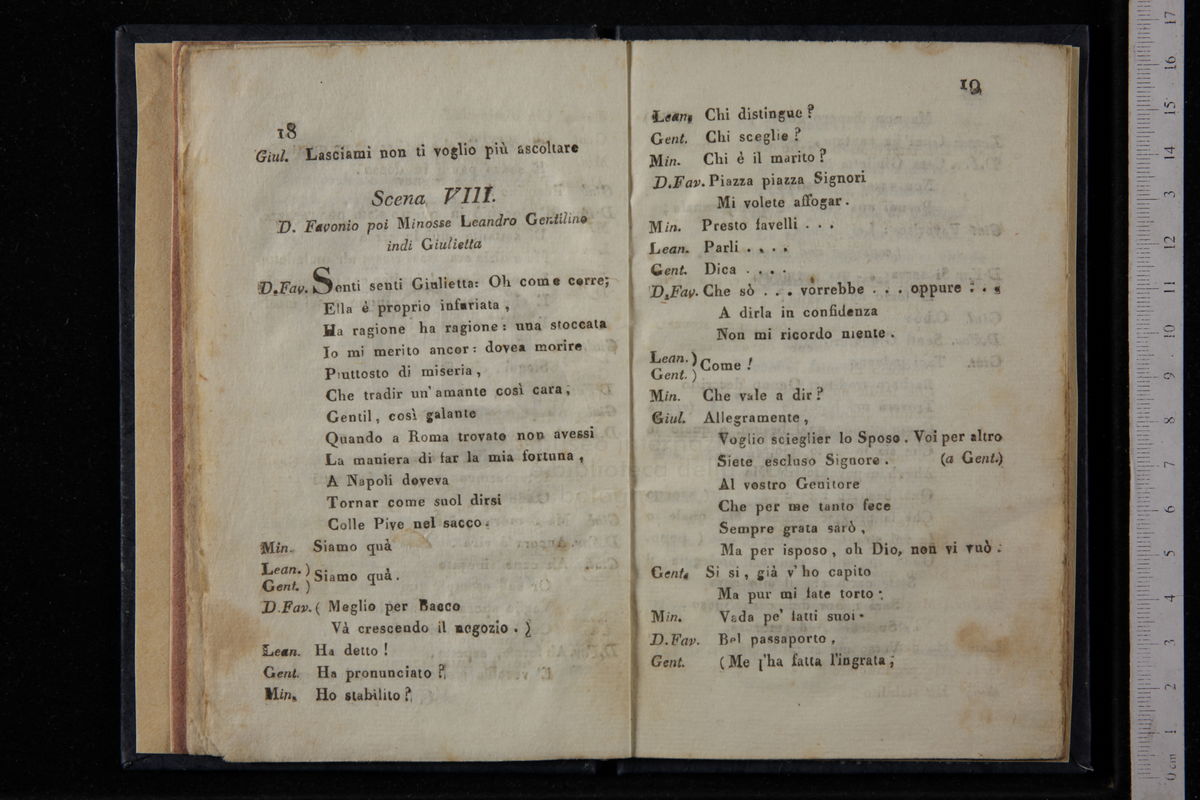 18
Giul. Lasciami non ti voglio più ascoltare
Scena VIII.
D. Favonio poi Minosse Leandro Gentilino
indi Giulietta
D.Fav. Senti senti Giulietta: Oh come corre;
Ella è proprio infuriata,
Ha ragione ha ragione: una stoccata
Io mi merito ancor: dovea morire
Piuttosto di miseria,
Che tradir un' amante così cara;
Gentil, così galante
Quando a Roma trovato non avessi
La maniera di far la mia fortuna,
A Napoli doveva
Tornar come suol dirsi
Colle Pive nel sacco.
Min. Siamo quà
Lean. )
Gent. ) Siamo quà.
D.Fav. ( Meglio per Bacco
Và crescendo il negozio. )
Lean. Ha detto!
Gent. Ha pronunciato?
Min. Ho stabilito?
19
Lean. Chi distingue?
Gent. Chi sceglie?
Min. Chi è il marito?
D.Fav. Piazza piazza Signori
Mi volete affogar.
Min. Presto favelli . . .
Lean. Parli . . . .
Gent. Dica . . . .
D.Fav. Che sò . . . vorrebbe . . . oppure . . .
A dirla in confidenza
Non mi ricordo niente.
Lean. )
Gent. ) Come!
Min. Che vale a dir?
Giul. Allegramente,
Voglio scieglier lo Sposo. Voi per altro
Siete escluso Signore. (a Gent.)
Al vostro Genitore
Che per me tanto fece
Sempre grata sarò,
Ma per isposo, oh Dio, non vi vuò.
Gent. Si si, già v' ho capito
Ma pur mi fate torto.
Min. Vada pe' fatti suoi.
D.Fav. Bel passaporto,
Gent. (Me l'ha fatta l'ingrata;
0 cm 1 2 3 4 5 6 7 8 9 10 11 12 13 14 15 16 17